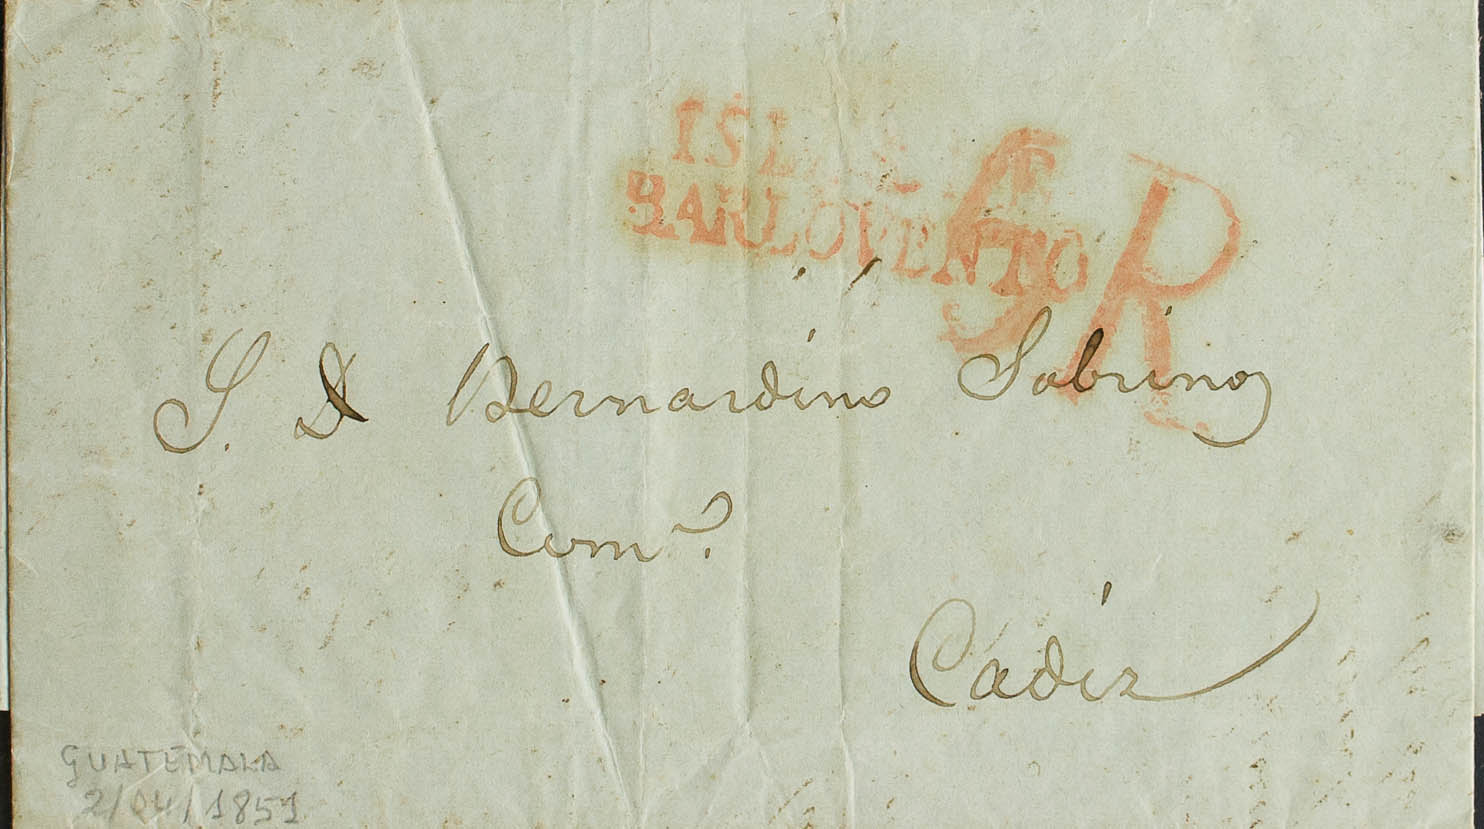 ISLAS DE
BARLOVENTO
5R
S. D Bernardino Sobrino
Comº.
Cadiz
GUATEMALA
2/04/1851